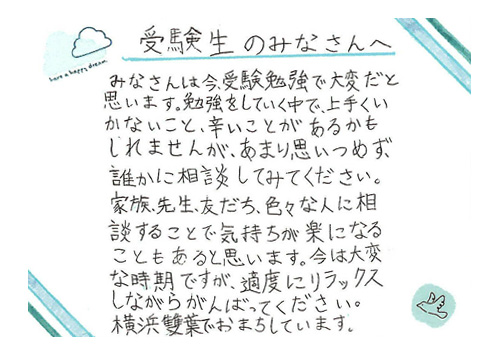 have a happy dream.
受験生のみなさんへ
みなさんは今、受験勉強で大変だと
思います。勉強をしていく中で、上手くい
かないこと、辛いことがあるかも
しれませんが、あまり思いつめず、
誰かに相談してみてください。
家族、先生、友だち、色々な人に相
談することで気持ちが楽になる
こともあると思います。今は大変
な時期ですが、適度にリラックス
しながらがんばってください。
横浜雙葉でおまちしています。